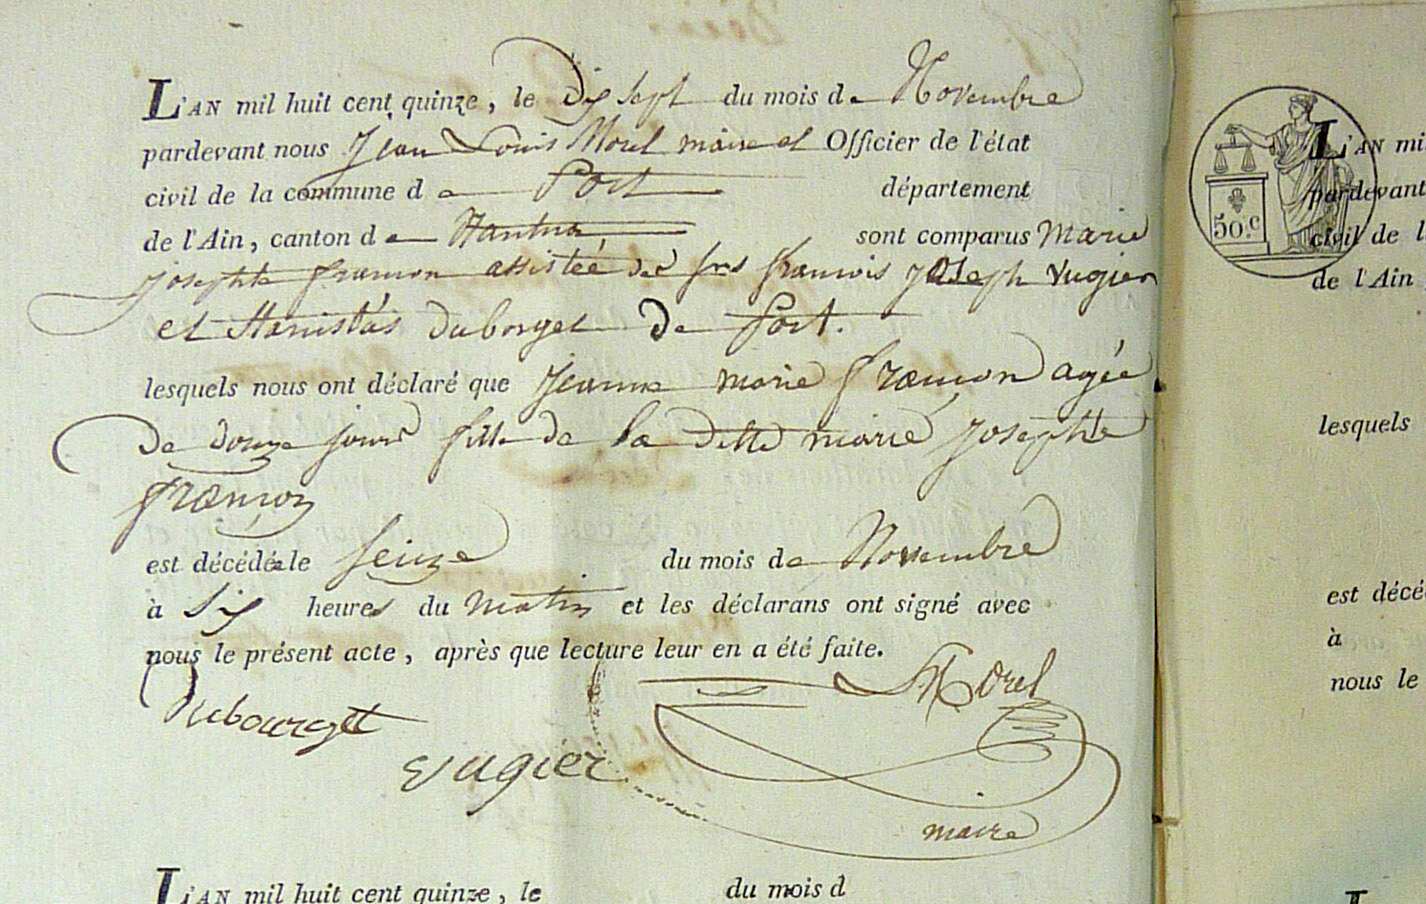 L'AN mil huit cent quinze, le Dix Sept du mois de Novembre
pardevant nous Jean Louis Morel maire et Officier de l'état
civil de la commune de Port département
de l'Ain, canton de Nantua sont comparus Marie
josephte françon assistée des srs françois joseph vugier
et Stanislas Dubourget De Port.
lesquels nous ont déclaré que jeanne marie françon agée
De douze jours fille de la ditte marie josephte
françon
est décédée le seize du mois de Novembre
à Six heures du Matin et les déclarans ont signé avec
nous le présent acte, après que lecture leur en a été faite.
Morel
Dubourget
vugier
maire
L'AN mil huit cent quinze, le du mois d
50.c
L'AN mi
pardevant
civil de l
de l'Ain
lesquels
est décé
à
nous le
L